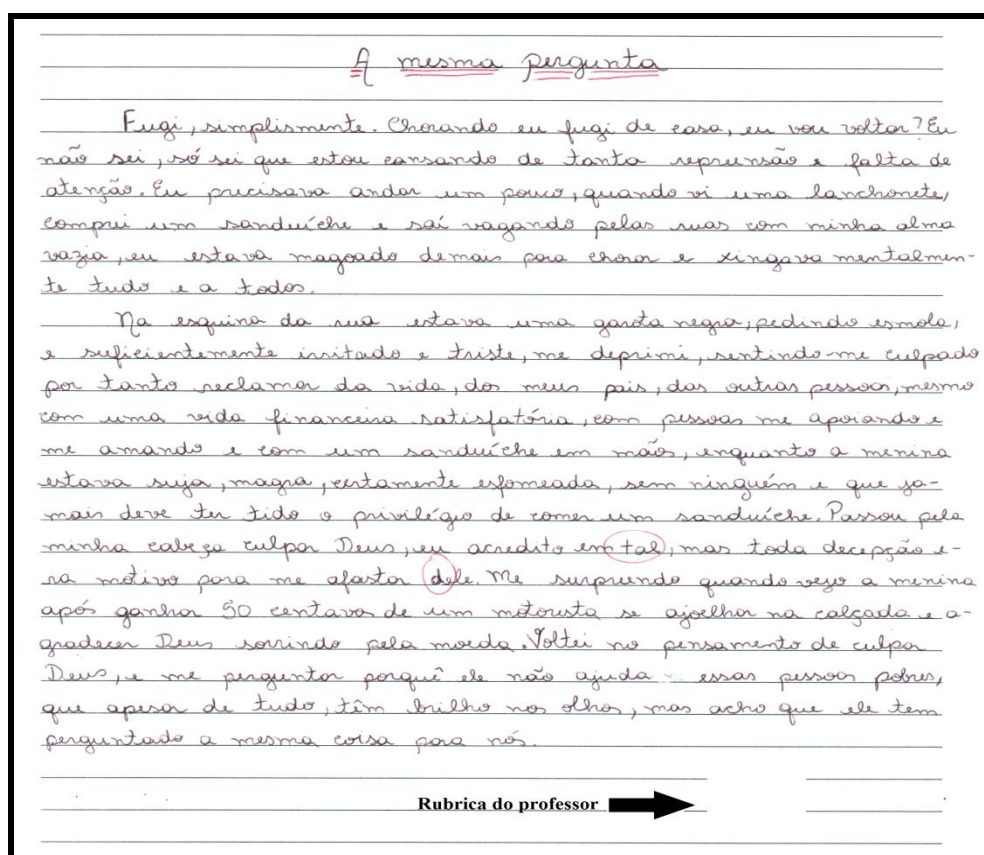 A mesma pergunta
Fugi, simplismente. Chorando eu fugi de casa, eu vou voltar? Eu
não sei, só sei que estou cansando de tanta repreensão e falta de
atenção. Eu precisava andar um pouco, quando vi uma lanchonete,
comprei um sanduíche e saí vagando pelas ruas com minha alma
vazia, eu estava magoado demais para chorar e xingava mentalmen-
te tudo e a todos.
Na esquina da rua estava uma garota negra, pedindo esmola,
e suficientemente irritado e triste, me deprimi, sentindo-me culpado
por tanto reclamar da vida, dos meus pais, das outras pessoas, mesmo
com uma vida financeira satisfatória, com pessoas me apoiando e
me amando e com um sanduíche em mãos, enquanto a menina
estava suja, magra, certamente esfomeada, sem ninguém e que ja-
mais deve ter tido o privilégio de comer um sanduíche. Passou pela
minha cabeça culpar Deus, eu acredito em tal, mas toda decepção e-
ra motivo para me afastar dele. Me surpreendo quando vejo a menina
após ganhar 50 centavos de um motorista se ajoelhar na calçada e a-
gradecer Deus sorrindo pela moeda. Voltei no pensamento de culpar
Deus, e me perguntar porquê ele não ajuda essas pessoas pobres,
que apesar de tudo, têm brilho nos olhos, mas acho que ele tem
perguntado a mesma coisa para nós.
Rubrica do professor